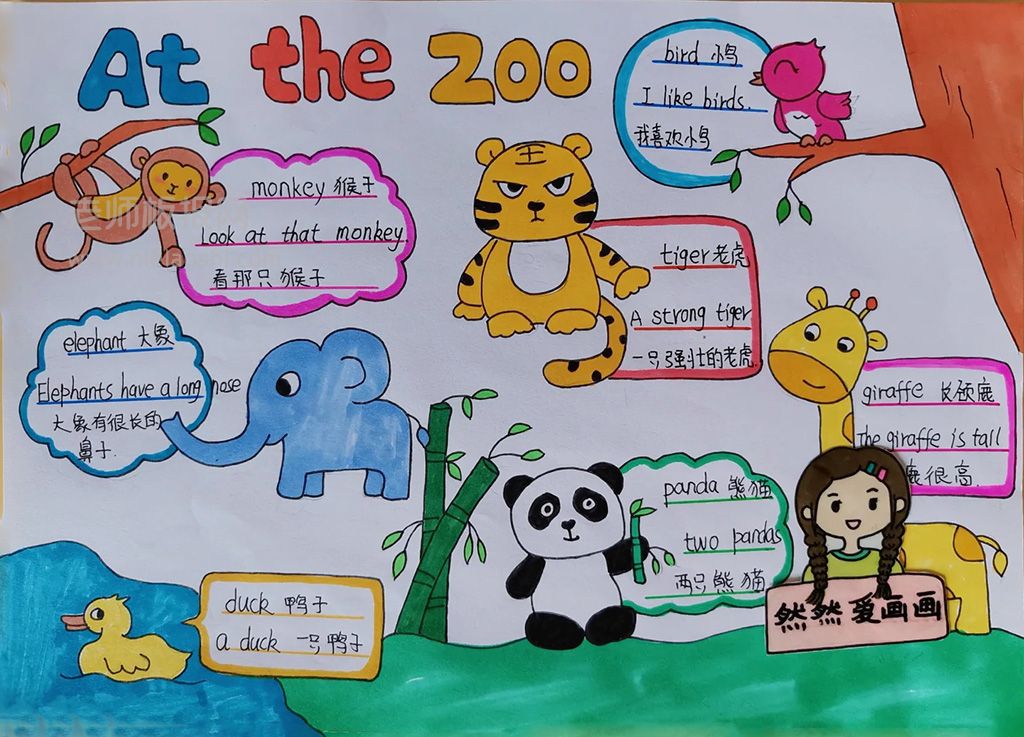 At the Zoo
bird 小鸟
I like birds.
我喜欢小鸟
monkey 猴子
Look at that monkey.
看那只猴子
tiger 老虎
A strong tiger
一只强壮的老虎
elephant 大象
Elephants have a long nose
大象有很长的
鼻子.
giraffe 长颈鹿
The giraffe is tall
鹿很高.
panda 熊猫
two pandas
两只熊猫
duck 鸭子
a duck 一只鸭子
然然爱画画